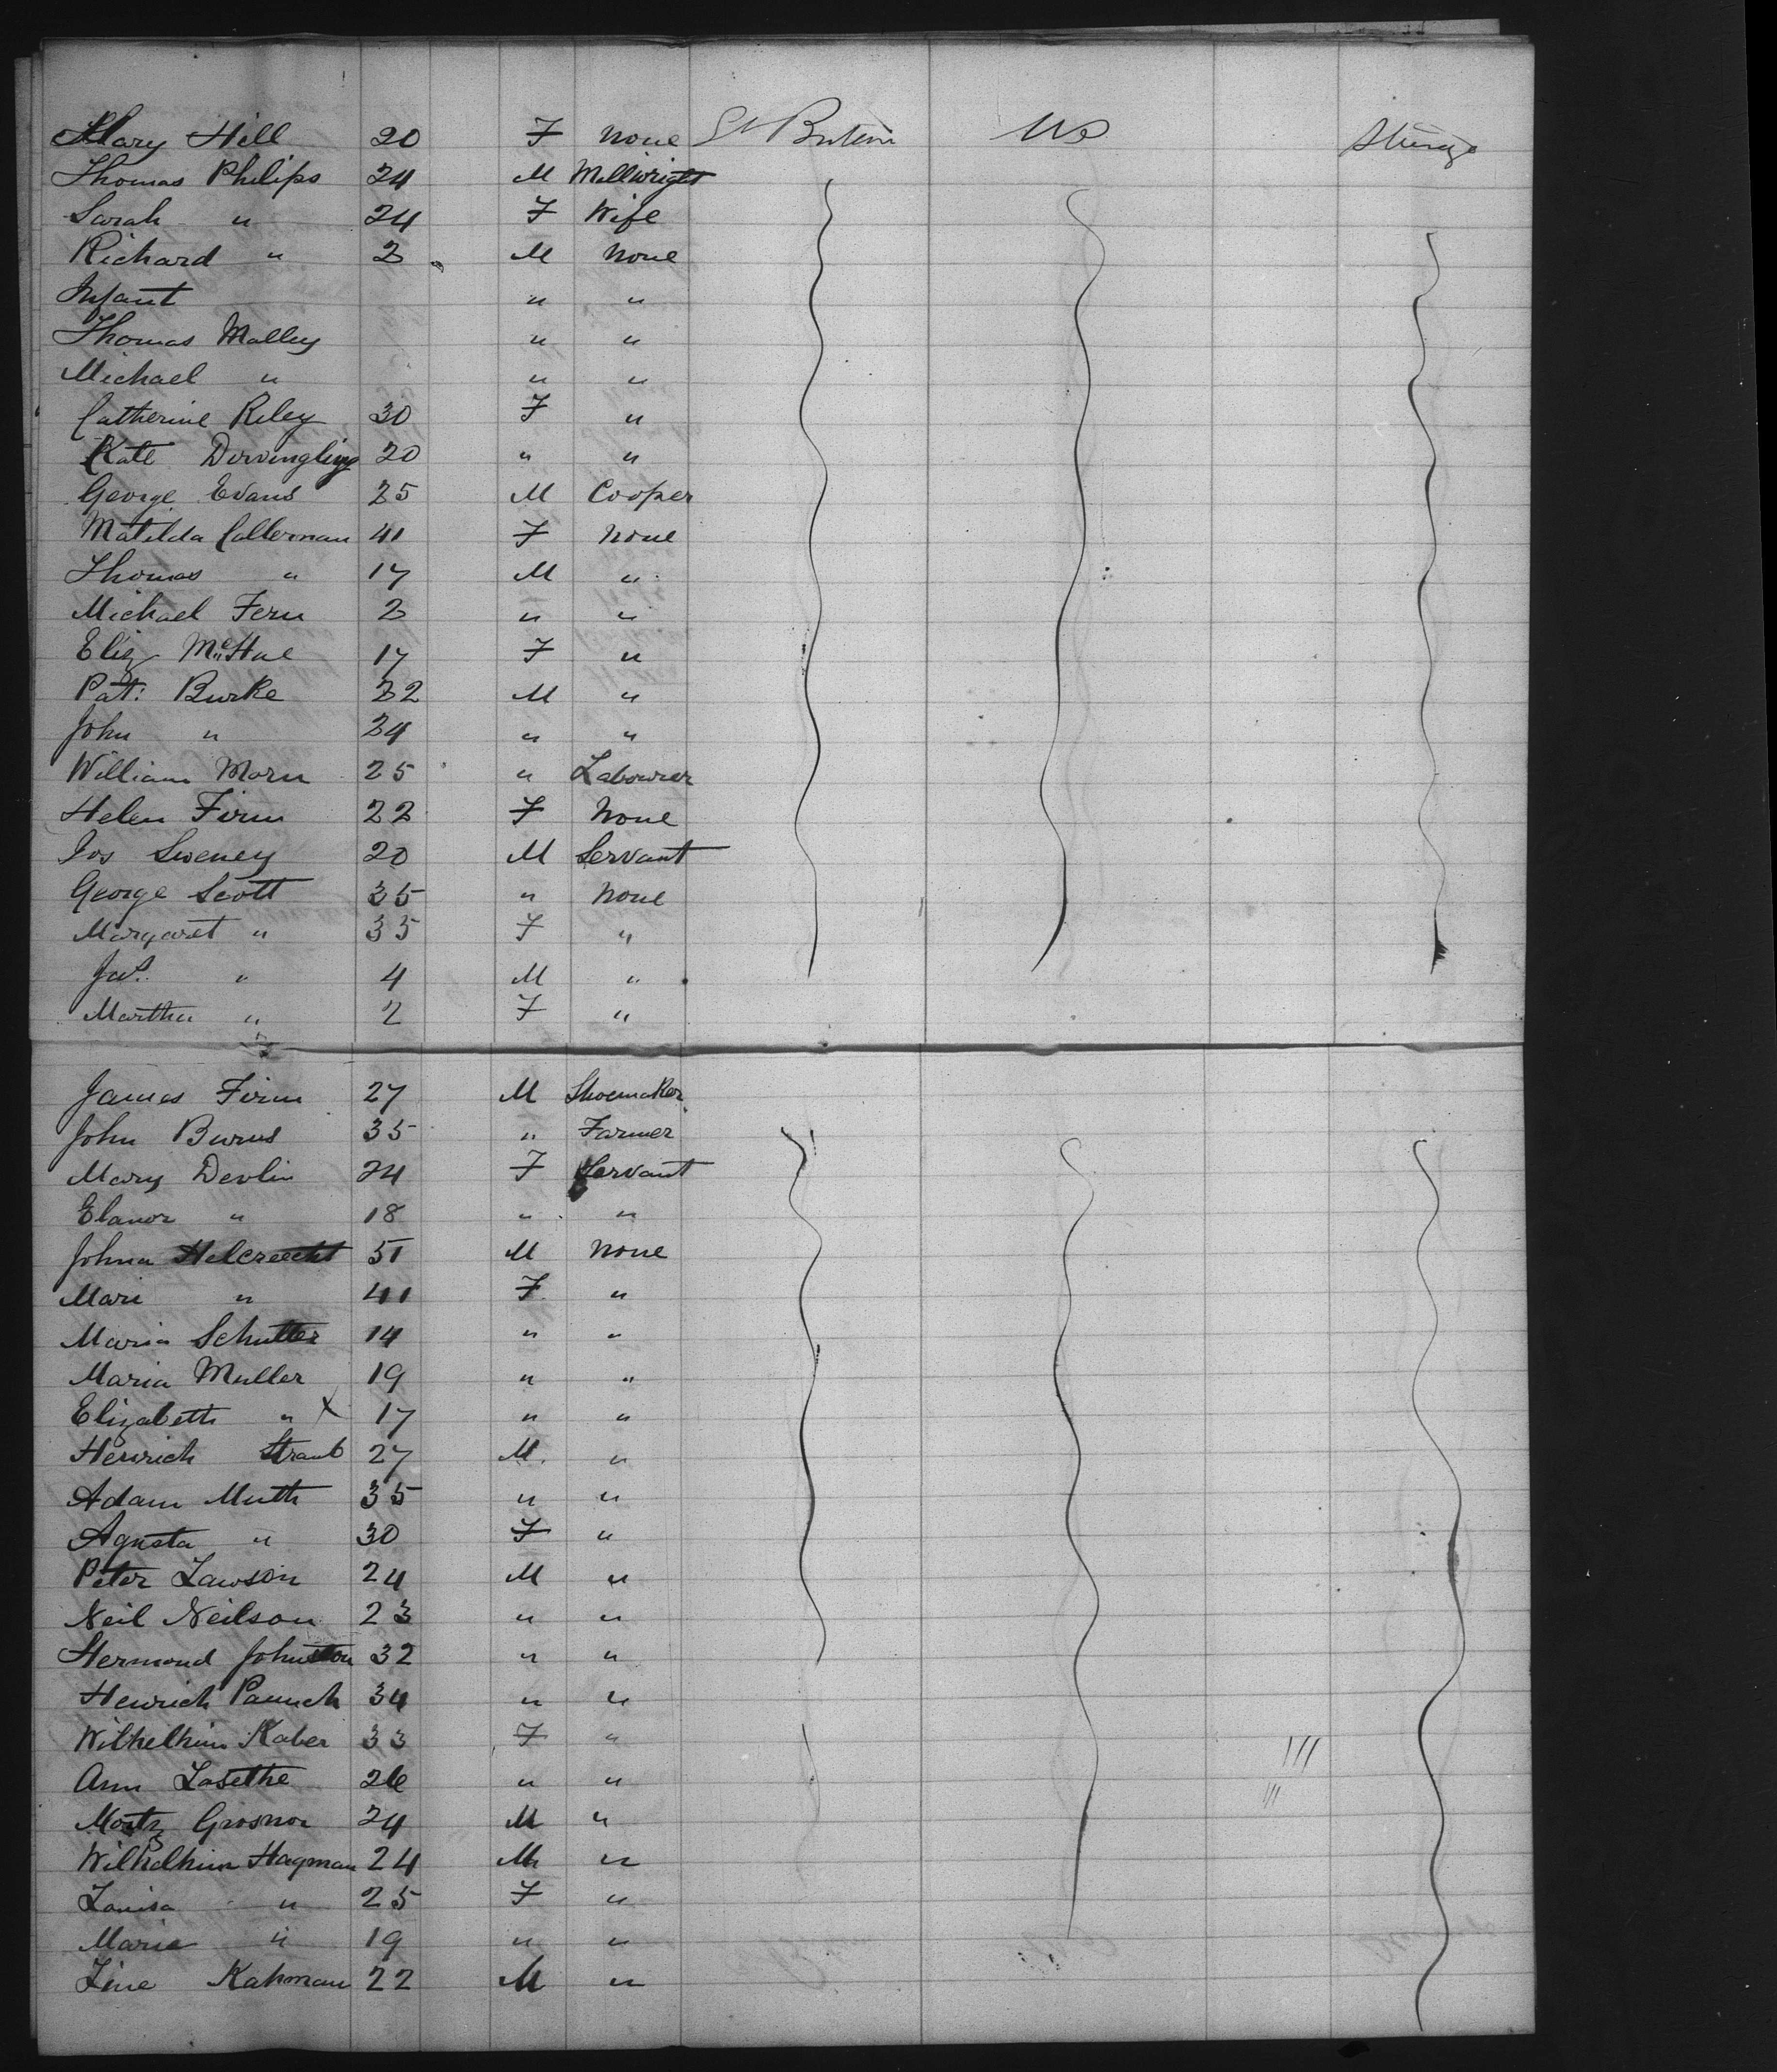 Mary Hill 20 F None Gt Britain US Steerage
Thomas Philips 24 M Millwright
Sarah " 24 F Wife
Richard " 2 M None
Infant " "
Thomas Malley " "
Michael " " "
Catherine Riley 30 F "
Kate 20 " "
George Evans 25 M Cooper
Matilda Callernan 41 F None
Thomas " 17 M "
Michael Fern 2 " "
Eliz McHue 17 F "
Pat: Burke 22 M "
John " 24 " "
William Morn 25 " Labourer
Helen Firm 22 F None
Jos Sweney 20 M Servant
George Scott 35 " None
Margaret " 35 F "
Jas. " 4 M "
Martha " 2 F "
James Firm 27 M Shoemaker
John Burns 35 " Farmer
Mary Devlin 24 F Servant
Elanor " 18 " "
Johna 51 M None
Mari " 41 F "
Maria Schutter 14 " "
Maria Muller 19 " "
Elizabeth " X 17 " "
Henrich Straub 27 M. "
Adam Muth 35 " "
Agusta " 30 F "
Peter Lawson 24 M "
Neil Neilson 23 " "
Hermond Johnston 32 " "
Henrich Paunch 34 " "
Wilhelhim Kaber 33 F "
Ann Lasethe 26 " "
Moritz Grosnor 24 M "
Wilhelhim Hagman 24 M "
Louisa " 25 F "
Marie " 19 " "
Line Kahman 22 M "